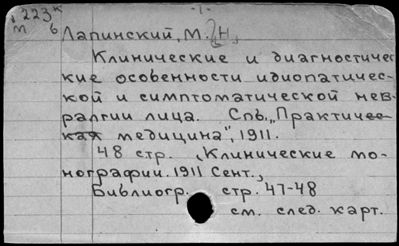 223к -1-
м б Лапинский, М. Н.,
Клинические и диагностичес
кие особенности идиопатичес-
кой и симптоматической нев-
ралгии лица. Спб., „Практичес-
кая медицина", 1911.
48 стр. (Клинические мо-
нографии. 1911 Сент.,
Библиогр. стр. 47-48
см. след. карт.